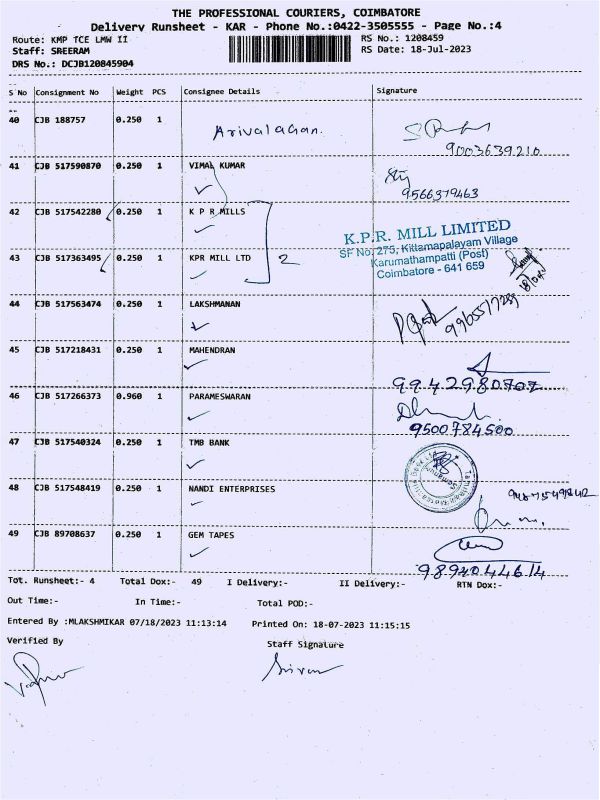 THE PROFESSIONAL COURIERS, COIMBATORE
Delivery Runsheet - KAR - Phone No.:0422-3505555 - Page No.:4
Route: KMP TCE LMW II RS No.: 1208459
Staff: SREERAM RS Date: 18-Jul-2023
DRS No.: DCJB120845904
S No Consignment No Weight PCS Consignee Details Signature
40 CJB 188757 0.250 1 Arivalagan.
9003639210
41 CJB 517590870 0.250 1 VIMAL KUMAR
9566379463
42 CJB 517542280 0.250 1 K P R MILLS
K.P.R. MILL LIMITED
SF No. 275, Kittamapalayam Village
43 CJB 517363495 0.250 1 KPR MILL LTD 2
Karumathampatti (Post)
Coimbatore - 641 659
44 CJB 517563474 0.250 1 LAKSHMANAN
45 CJB 517218431 0.250 1 MAHENDRAN
9942980707
46 CJB 517266373 0.960 1 PARAMESWARAN
9500784500
47 CJB 517540324 0.250 1 TMB BANK
48 CJB 517548419 0.250 1 NANDI ENTERPRISES
49 CJB 89708637 0.250 1 GEM TAPES
9894044614
Tot. Runsheet:- 4 Total Dox:- 49 I Delivery:- II Delivery:- RTN Dox:-
Out Time:- In Time:- Total POD:-
Entered By :MLAKSHMIKAR 07/18/2023 11:13:14 Printed On: 18-07-2023 11:15:15
Verified By Staff Signature